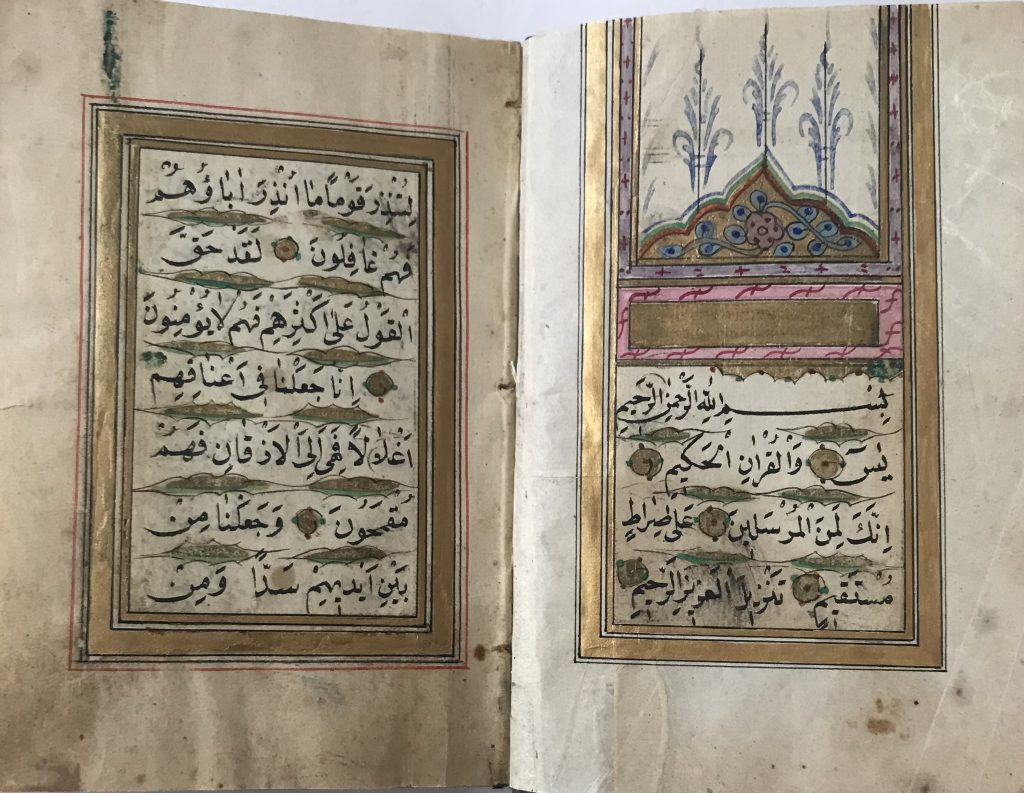 بِسْمِ اللهِ الرَّحْمٰنِ الرَّحِيمِ
يٰسۤ وَالْقُرْاٰنِ الْحَكِيمِ
اِنَّكَ لَمِنَ الْمُرْسَلِينَ عَلٰى صِرَاطٍ
مُسْتَقِيمٍ تَنْزِيلَ الْعَزِيزِ الرَّحِيمِ
لِتُنْذِرَ قَوْمًا مَا اُنْذِرَ اٰبَاؤُهُمْ
فَهُمْ غَافِلُونَ لَقَدْ حَقَّ
الْقَوْلُ عَلٰى اَكْثَرِهِمْ فَهُمْ لَا يُؤْمِنُونَ
اِنَّا جَعَلْنَا فِى اَعْنَاقِهِمْ
اَغْلَالًا فَهِىَ اِلَى الْاَذْقَانِ فَهُمْ
مُقْمَحُونَ وَجَعَلْنَا مِنْ
بَيْنِ اَيْدِيهِمْ سَدًّا وَمِنْ